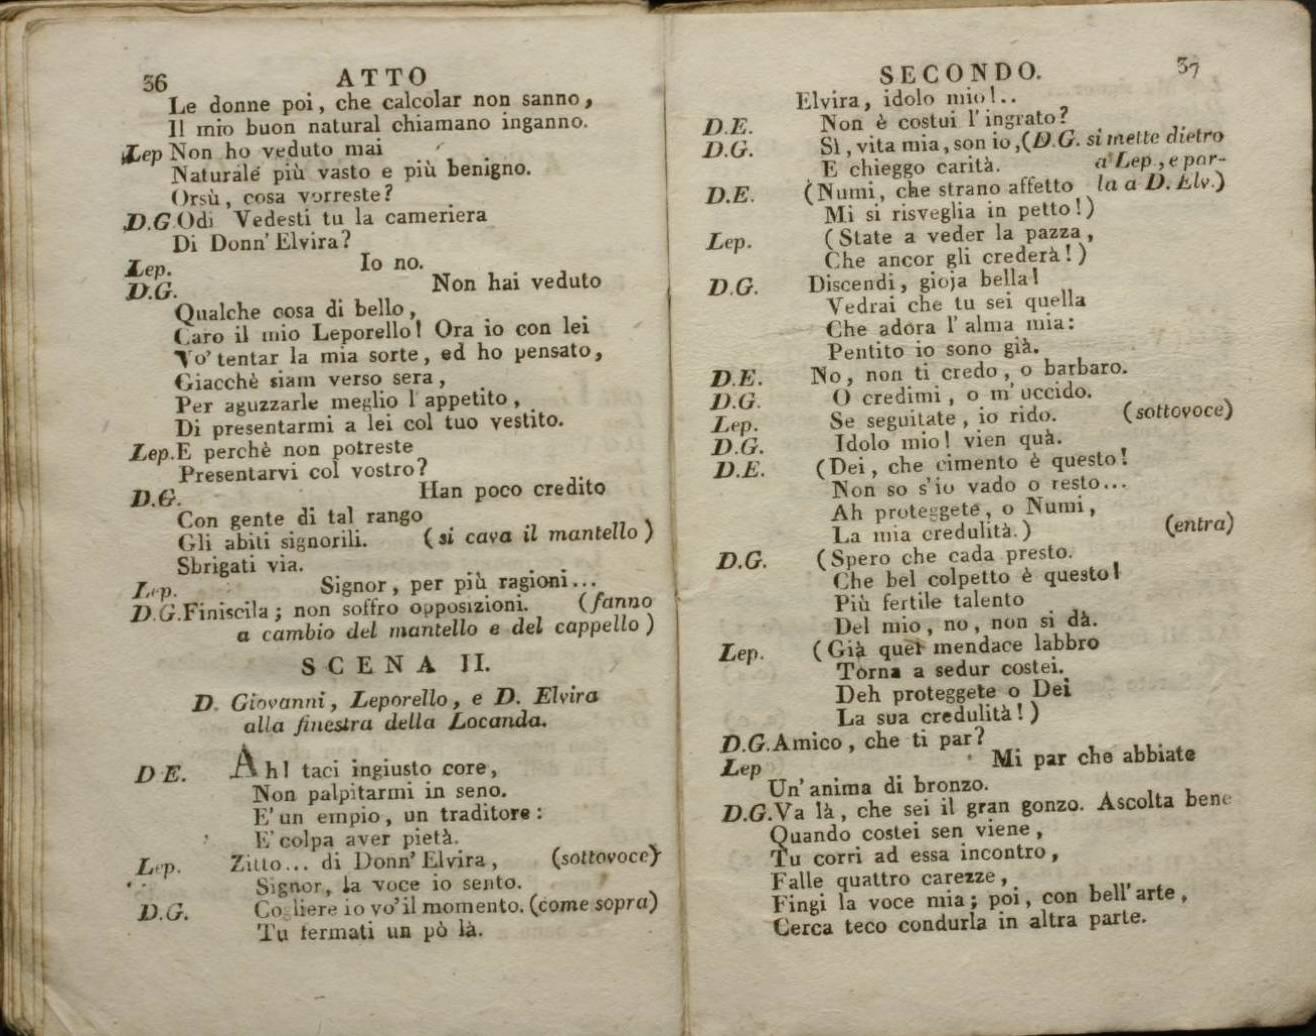 36 ATTO
Le donne poi, che calcolar non sanno,
Il mio buon natural chiamano inganno.
Lep Non ho veduto mai
Naturale più vasto e più benigno.
Orsù, cosa vorreste?
D.G. Odi Vedesti tu la cameriera
Di Donn' Elvira?
Lep. Io no.
D.G. Non hai veduto
Qualche cosa di bello,
Caro il mio Leporello! Ora io con lei
Vo' tentar la mia sorte, ed ho pensato,
Giacchè siam verso sera,
Per aguzzarle meglio l appetito,
Di presentarmi a lei col tuo vestito.
Lep. E perchè non potreste
Presentarvi col vostro?
D.G. Han poco credito
Con gente di tal rango
Gli abiti signorili. (si cava il mantello)
Sbrigati via.
Lep. Signor, per più ragioni...
D.G. Finiscila; non soffro opposizioni. (fanno
a cambio del mantello e del cappello)
SCENA II.
D. Giovanni, Leporello, e D. Elvira
alla finestra della Locanda.
D E. Ah! taci ingiusto core,
Non palpitarmi in seno.
E' un empio, un traditore:
E' colpa aver pietà.
Lep. Zitto... di Donn' Elvira, (sottovoce)
Signor, la voce io sento.
D.G. Cogliere io vo' il momento. (come sopra)
Tu fermati un pò là.
SECONDO. 37
Elvira, idolo mio!..
D.E. Non è costui l' ingrato?
D.G. Sì, vita mia, son io, (D.G. si mette dietro
E chieggo carità. a Lep., e par-
D.E. (Numi, che strano affetto la a D. Elv.)
Mi si risveglia in petto!)
Lep. (State a veder la pazza,
Che ancor gli crederà!)
D.G. Discendi, gioja bella!
Vedrai che tu sei quella
Che adora l' alma mia:
Pentito io sono già.
D.E. No, non ti credo, o barbaro.
D.G. O credimi, o m' uccido.
Lep. Se seguitate, io rido. (sottovoce)
D.G. Idolo mio! vien quà.
D.E. (Dei, che cimento è questo!
Non so s' io vado o resto...
Ah proteggete, o Numi,
La mia credulità.) (entra)
D.G. (Spero che cada presto.
Che bel colpetto è questo!
Più fertile talento
Del mio, no, non si dà.
Lep. (Già quel mendace labbro
Torna a sedur costei.
Deh proteggete o Dei
La sua credulità!)
D.G. Amico, che ti par?
Lep Mi par che abbiate
Un' anima di bronzo.
D.G. Va là, che sei il gran gonzo. Ascolta bene
Quando costei sen viene,
Tu corri ad essa incontro,
Falle quattro carezze,
Fingi la voce mia; poi, con bell' arte,
Cerca teco condurla in altra parte.